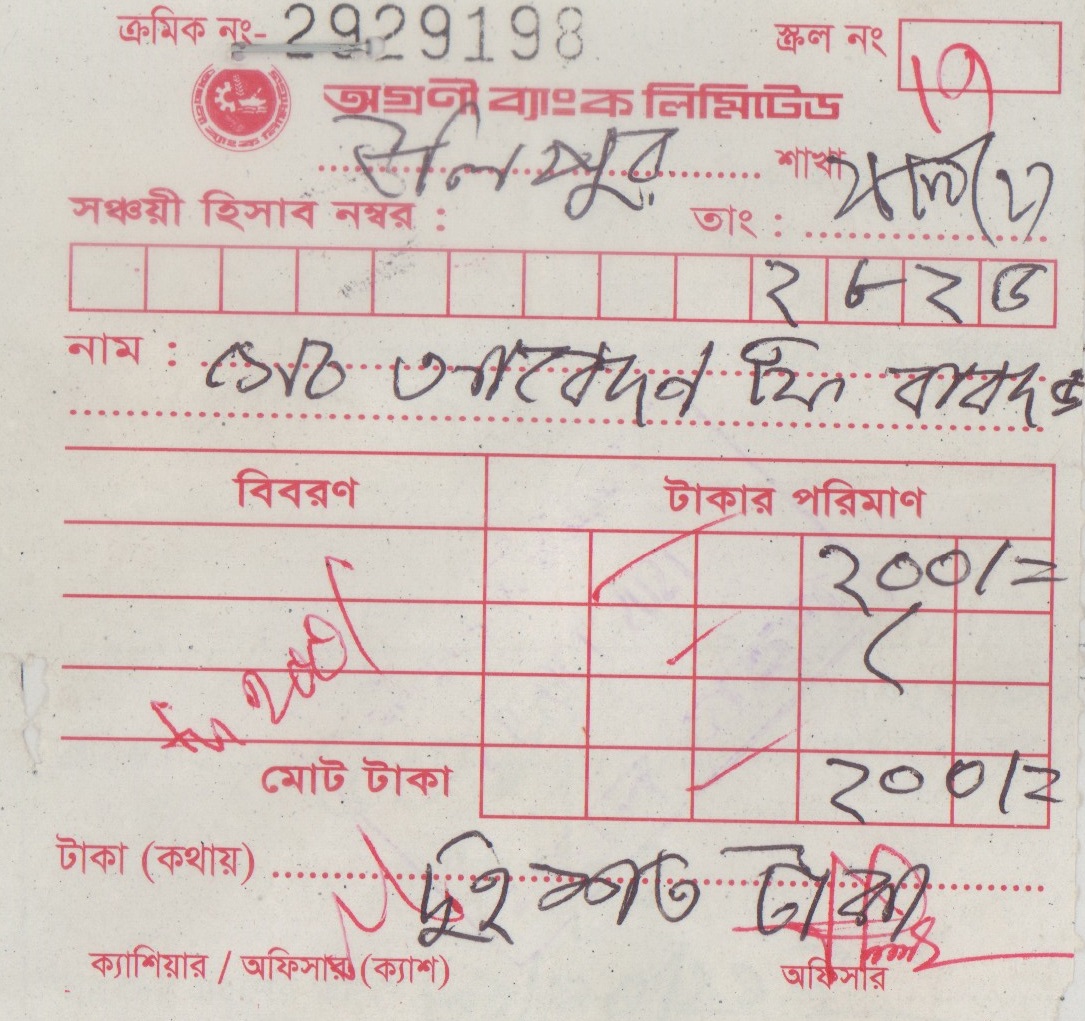 ক্রমিক নং- 2929198 স্ক্রল নং
অগ্রণী ব্যাংক লিমিটেড
উলিপুর শাখা
সঞ্চয়ী হিসাব নম্বর : তাং :
২ ৮ ২ ৫
নাম : আবেদন ফি বাবদ
বিবরণ টাকার পরিমাণ
২০০/=
২০০/
মোট টাকা ২০০/=
টাকা (কথায়) দুই শত টাকা
ক্যাশিয়ার / অফিসার (ক্যাশ) অফিসার